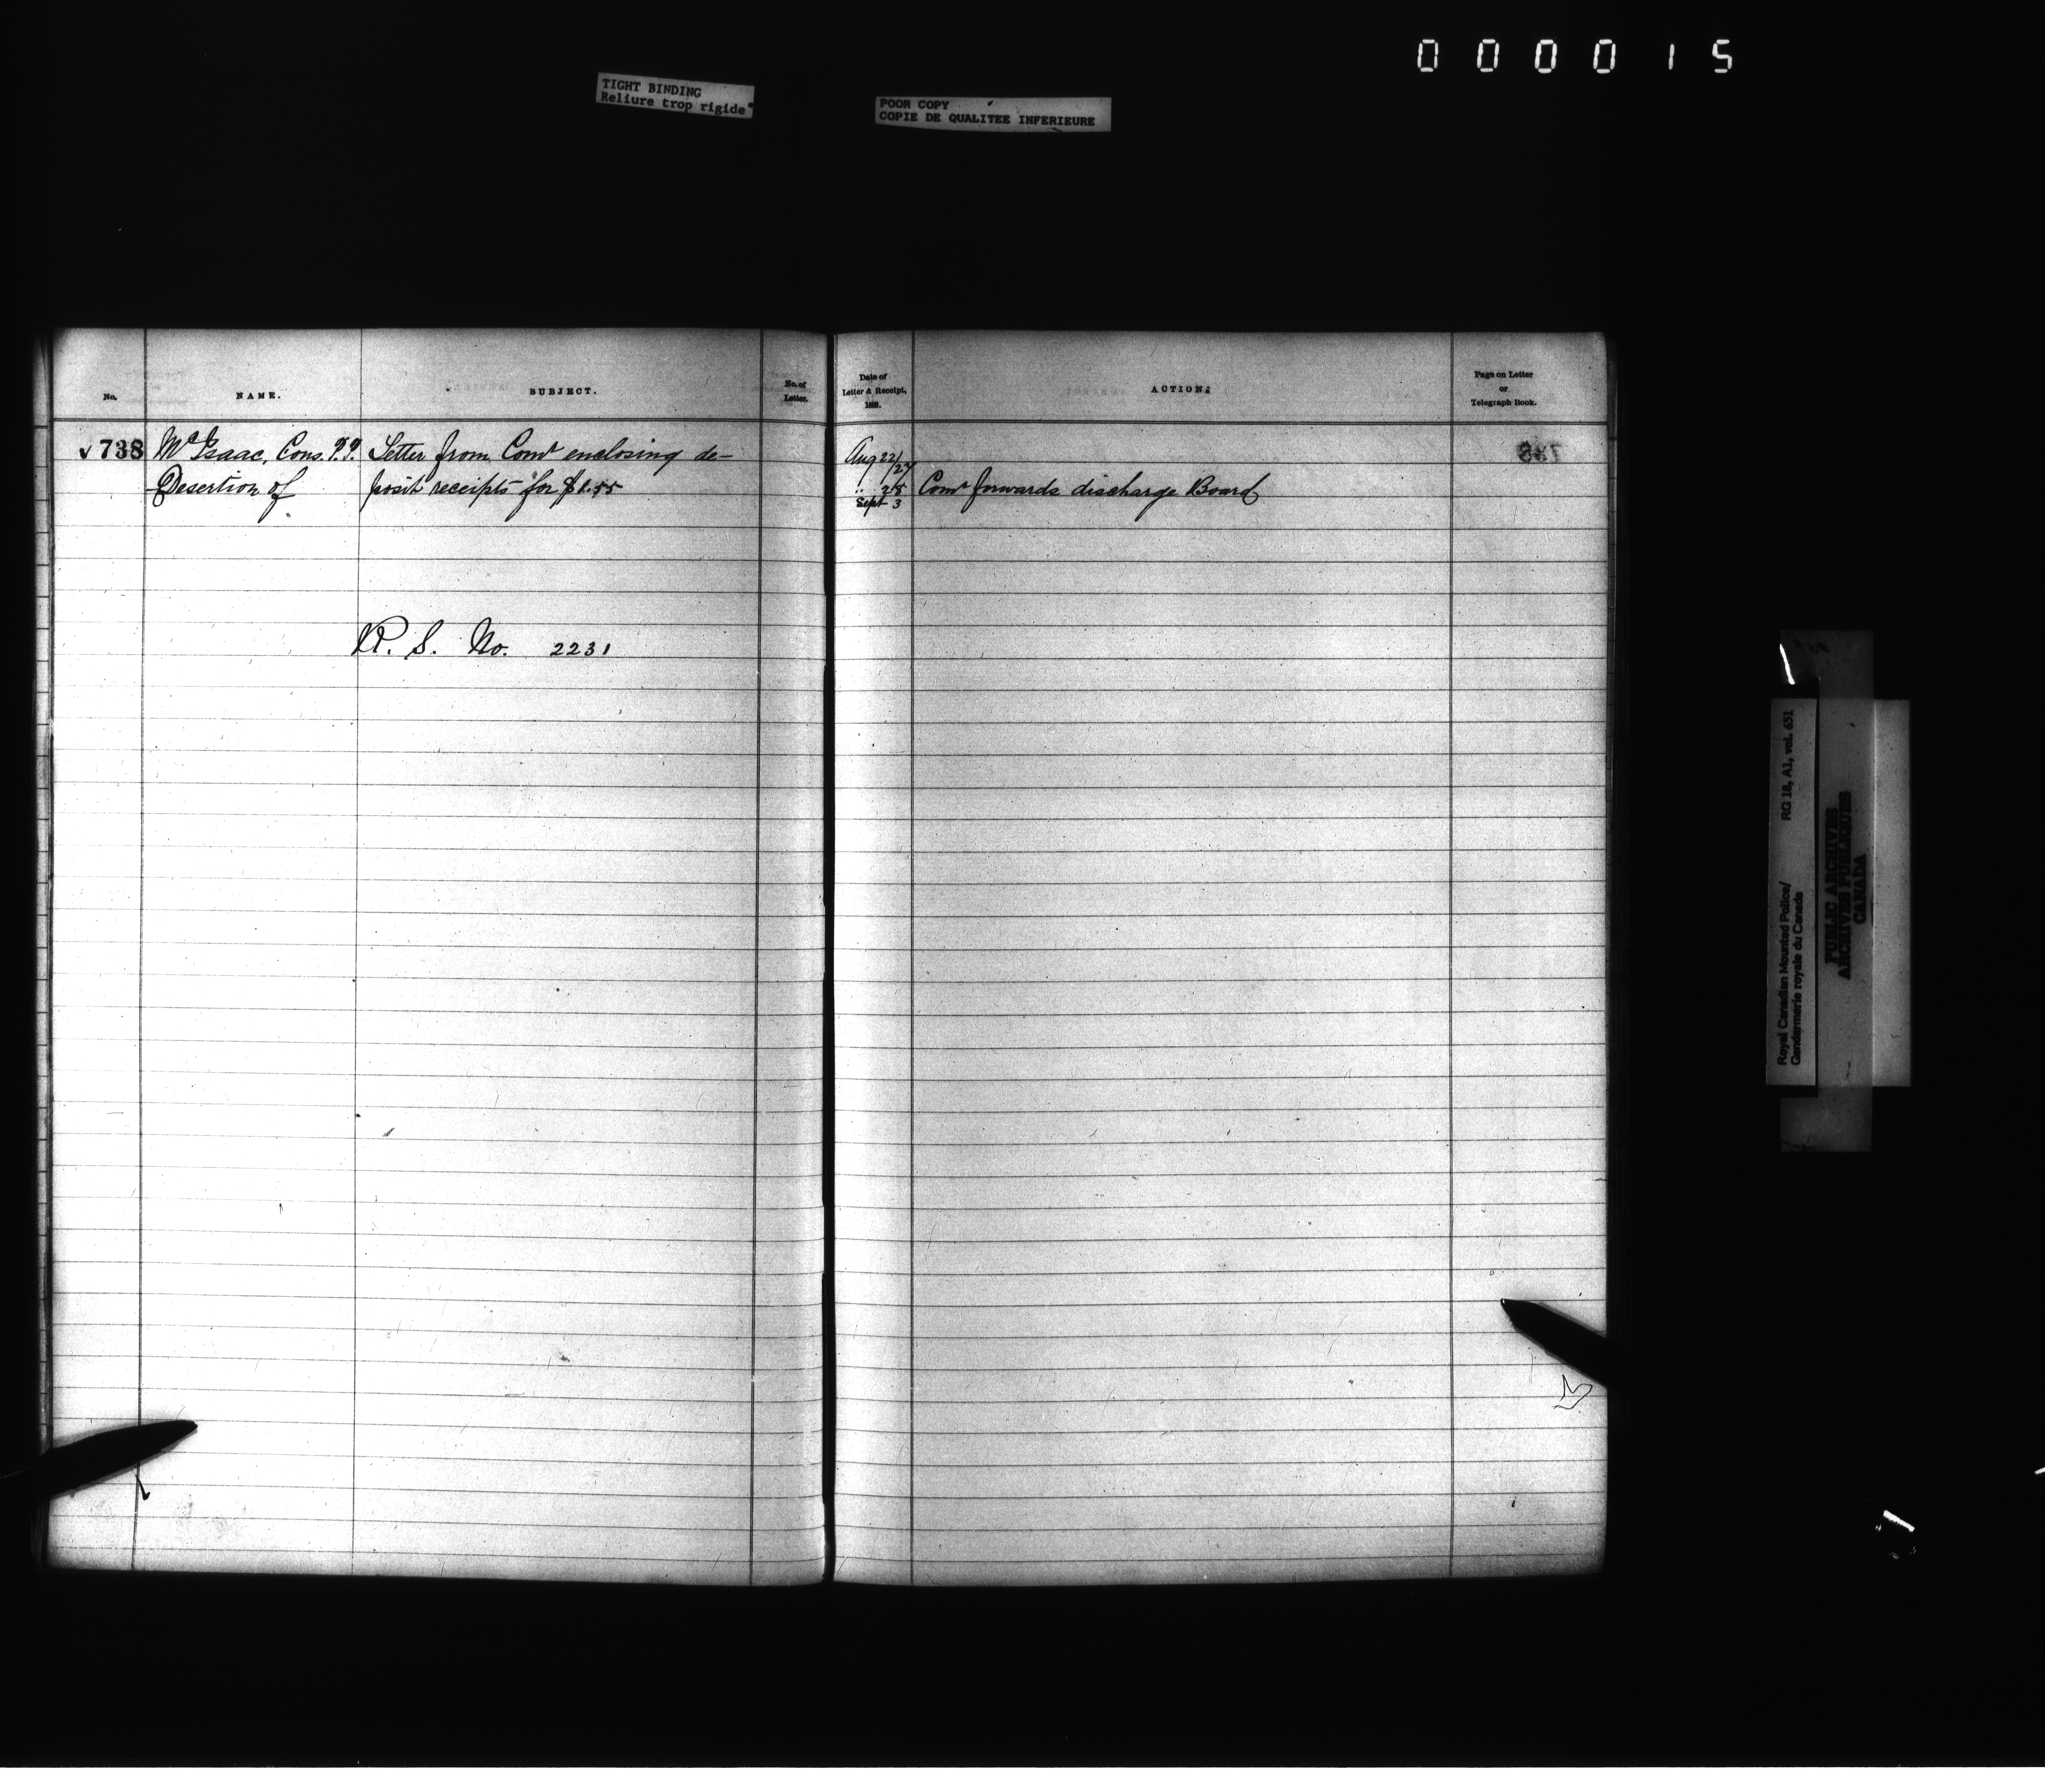 000015
TIGHT BINDING
Reliure trop rigide
POOR COPY
COPIE DE QUALITEE INFERIEURE
No.
NAME.
SUBJECT.
No. of
Letter.
Date of
Letter & Receipt,
188 .
ACTION.
Page on Letter
or
Telegraph Book.
738 McIsaac, Cons. Letter from Comr enclosing de-
Desertion of posit receipts for $1.55
R. S. No. 2231
Aug 22/27
" 28 Comr forwards discharge Board
Sept 3
Royal Canadian Mounted Police/
Gendarmerie royale du Canada
RG 18, A1, vol. 651
PUBLIC ARCHIVES
ARCHIVES PUBLIQUES
CANADA